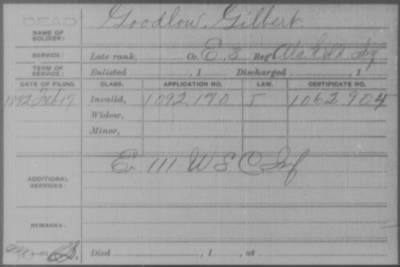 DEAD
NAME OF SOLDIER: Goodlow, Gilbert
SERVICE: Late rank, Co. E, 3 Reg't Ala. Inf
TERM OF SERVICE: Enlisted , 1 Discharged , 1
DATE OF FILING. CLASS. APPLICATION NO. LAW. CERTIFICATE NO.
1892 Feb 19 Invalid, 1092190 J 1062904
Widow,
Minor,
ADDITIONAL SERVICES: E. 111 U S C Inf
REMARKS:
Died , 1 , at